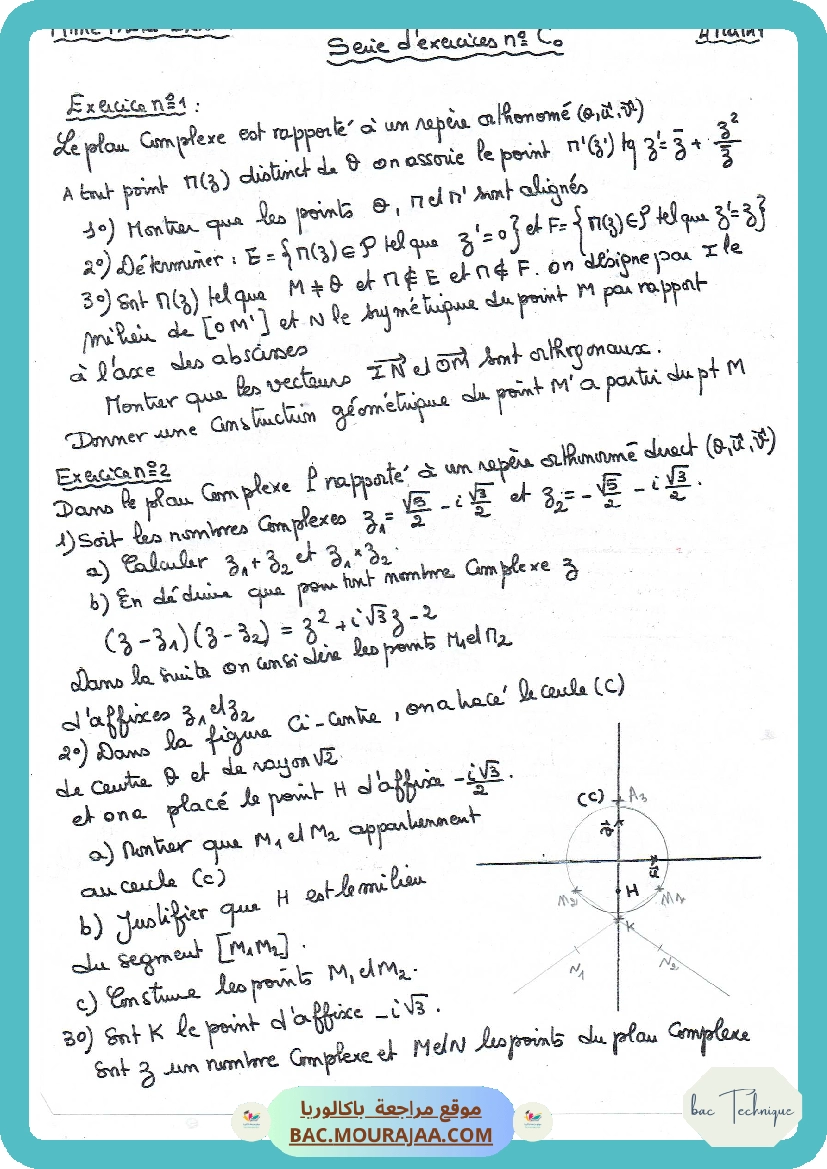 Serie d'exercices n° C₀
Exercice n°1 :
Le plan Complexe est rapporté à un repère orthonormé (O,u⃗,v⃗)
A tout point M(z) distinct de O on associe le point M'(z') tq z' = z̄ + z²/z̄
1°) Montrer que les points O, M et M' sont alignés
2°) Déterminer : E = {M(z) ∈ P tel que z'=0} et F = {M(z) ∈ P tel que z'=z}
3°) Soit M(z) tel que M ≠ O et M ∉ E et M ∉ F. on désigne par I le
milieu de [OM'] et N le symétrique du point M par rapport
à l'axe des abscisses
Montrer que les vecteurs IN⃗ et OM⃗ sont orthogonaux.
Donner une Construction géométrique du point M' a partir du pt M
Exercice n°2
Dans le plan Complexe P rapporté à un repère orthonormé direct (O,u⃗,v⃗)
1) Soit les nombres Complexes z₁ = √5/2 - i √3/2 et z₂ = - √5/2 - i √3/2 .
a) Calculer z₁ + z₂ et z₁ × z₂.
b) En déduire que pour tout nombre Complexe z
(z - z₁)(z - z₂) = z² + i√3 z - 2
Dans la suite on considère les points M₁ et M₂
d'affixes z₁ et z₂
2°) Dans la figure ci-contre, on a tracé le cercle (C)
de centre O et de rayon √2
et on a placé le point H d'affixe - i√3/2 .
a) Montrer que M₁ et M₂ appartiennent
au cercle (C)
b) Justifier que H est le milieu
du segment [M₁M₂] .
c) Construire les points M₁ et M₂.
3°) Soit K le point d'affixe - i√3 .
Soit z un nombre Complexe et M et N les points du plan Complexe
(C)
A₃
v⃗
u⃗
H
M₂
M₁
K
N₁
N₂
موقع مراجعة باكالوريا
BAC.MOURAJAA.COM
bac Technique